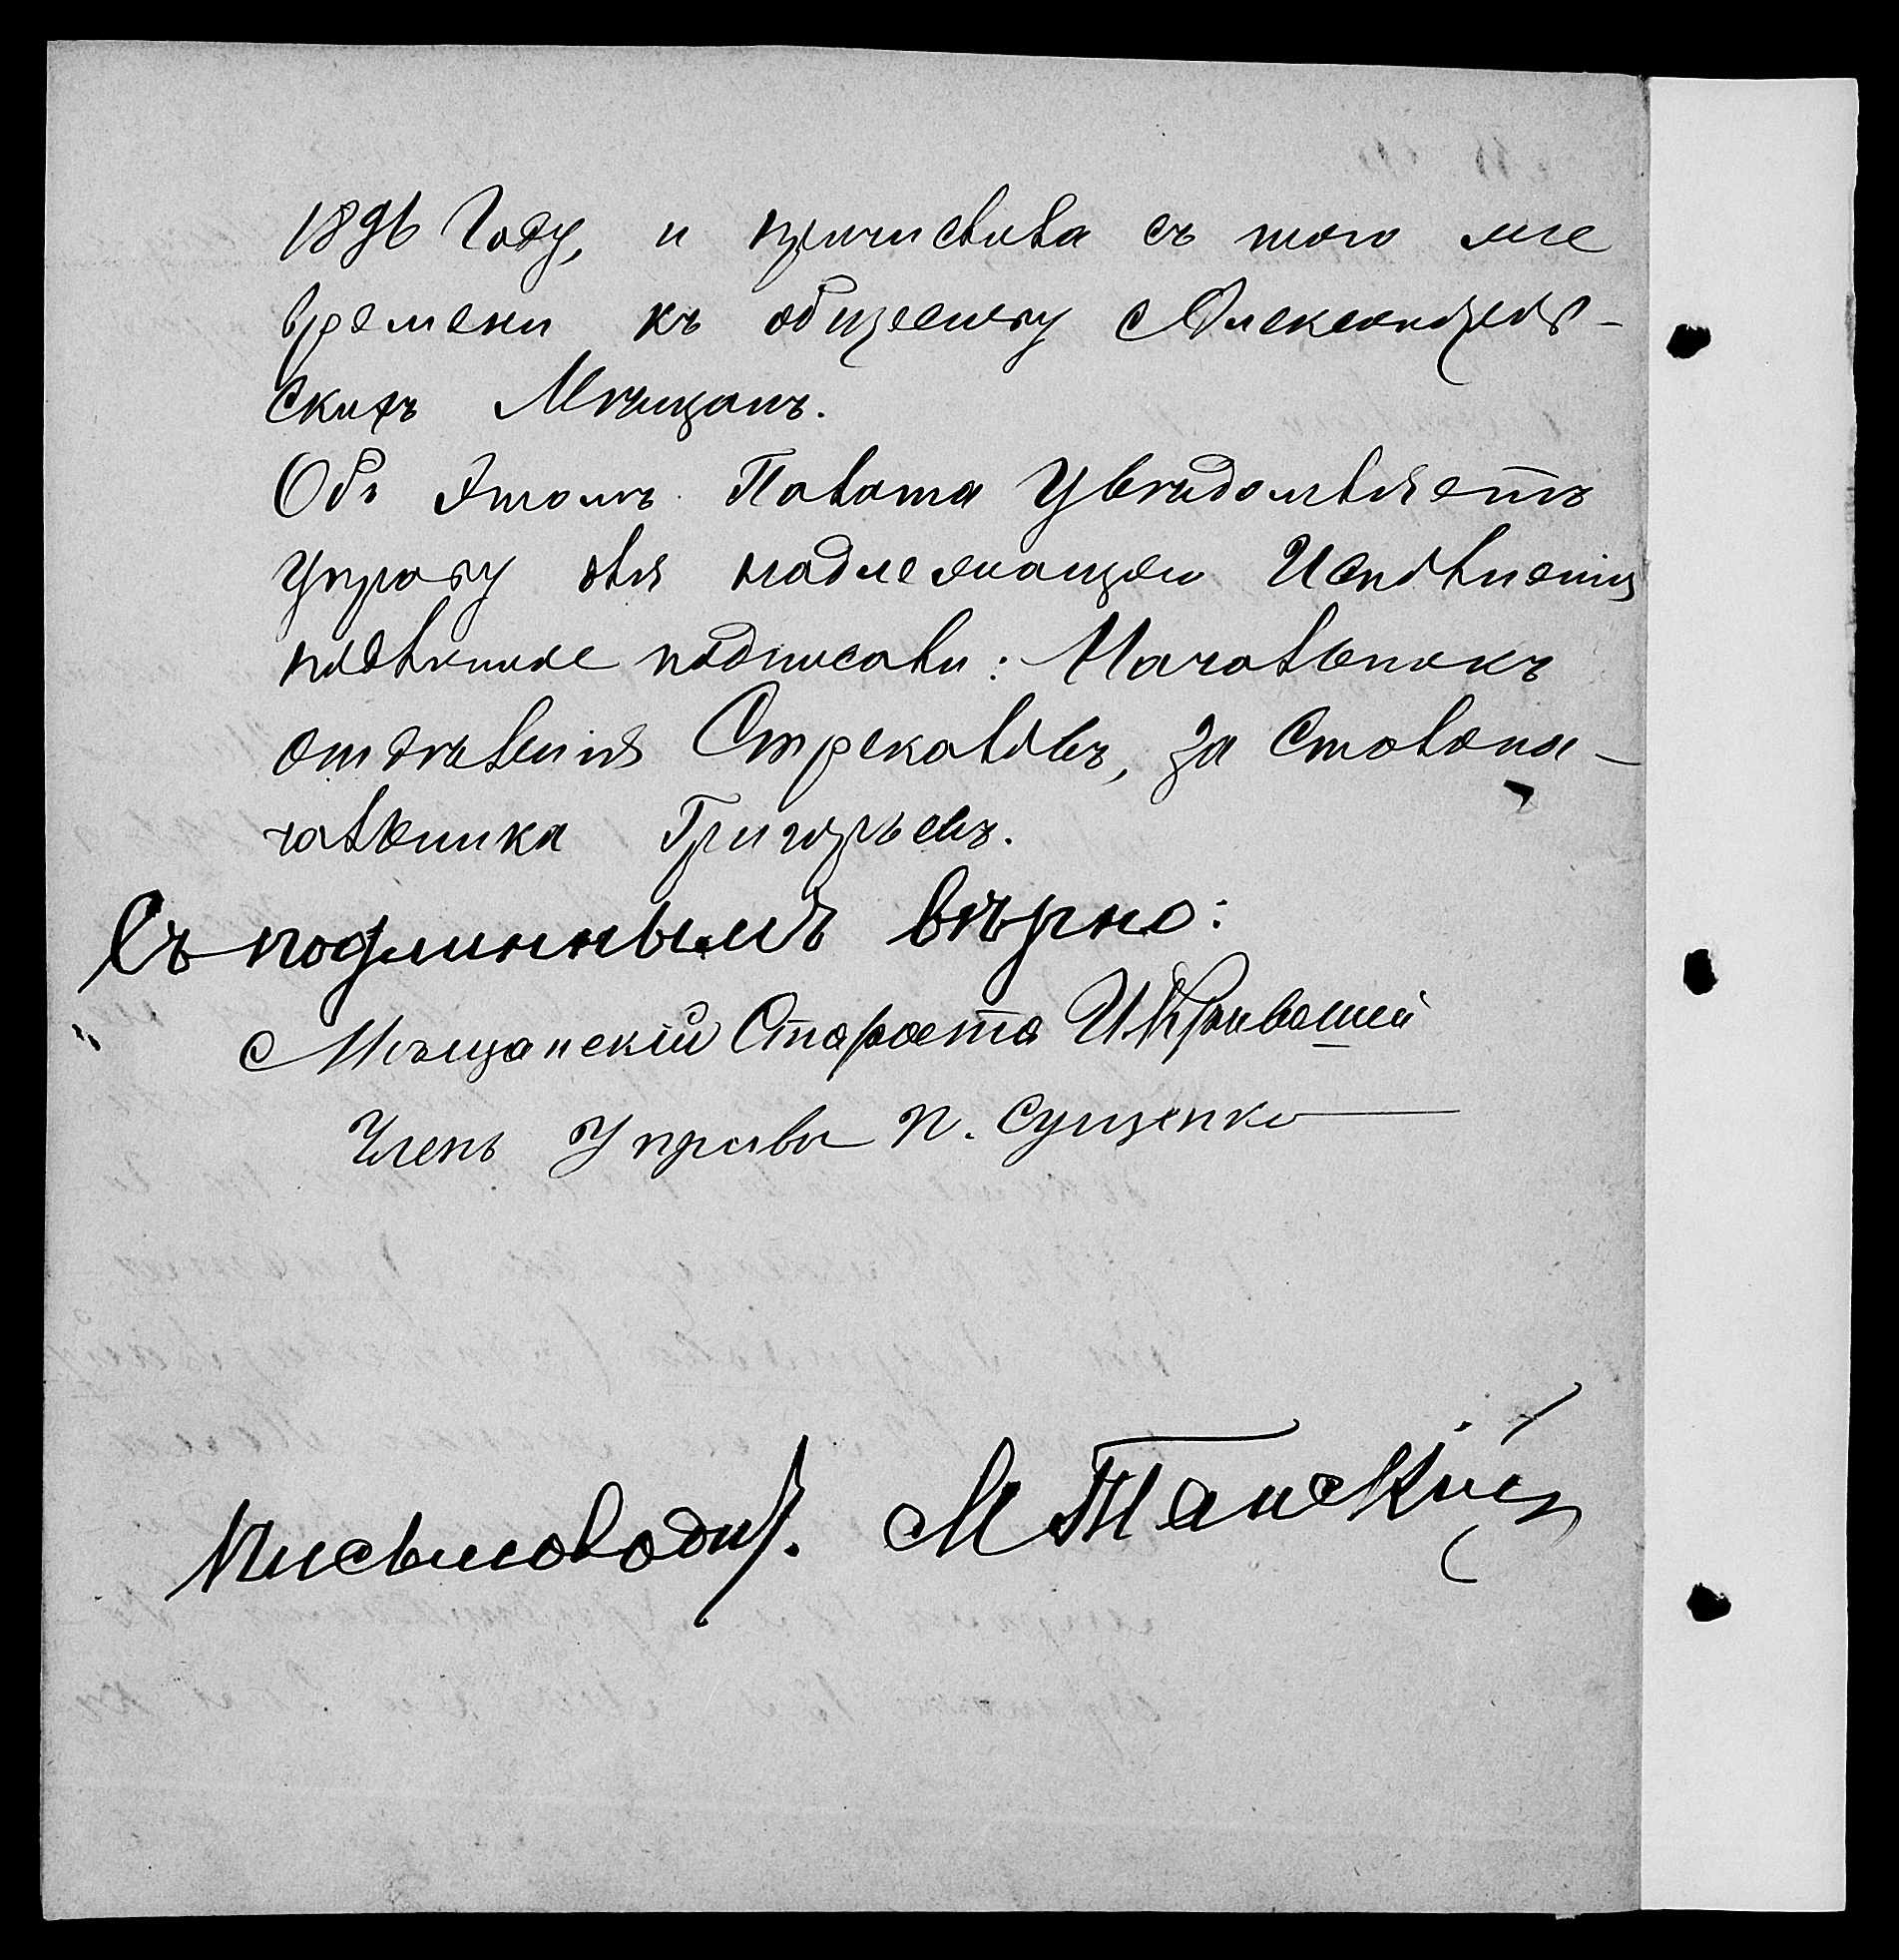 1896 Году, и причислила съ того же
времени къ обществу Александров-
скихъ Мѣщанъ.
Объ этомъ Палата Увѣдомляетъ
управу для надлежащаго Исполненія
подлинное подписали: Начальникъ
отдѣленія Стрекаловъ, за Столона-
чальника Григорьевъ.
Съ подлиннымъ вѣрно:
Мѣщанскій Староста И
Членъ Управы П. Сущенко
Письмоводит. М Танскій